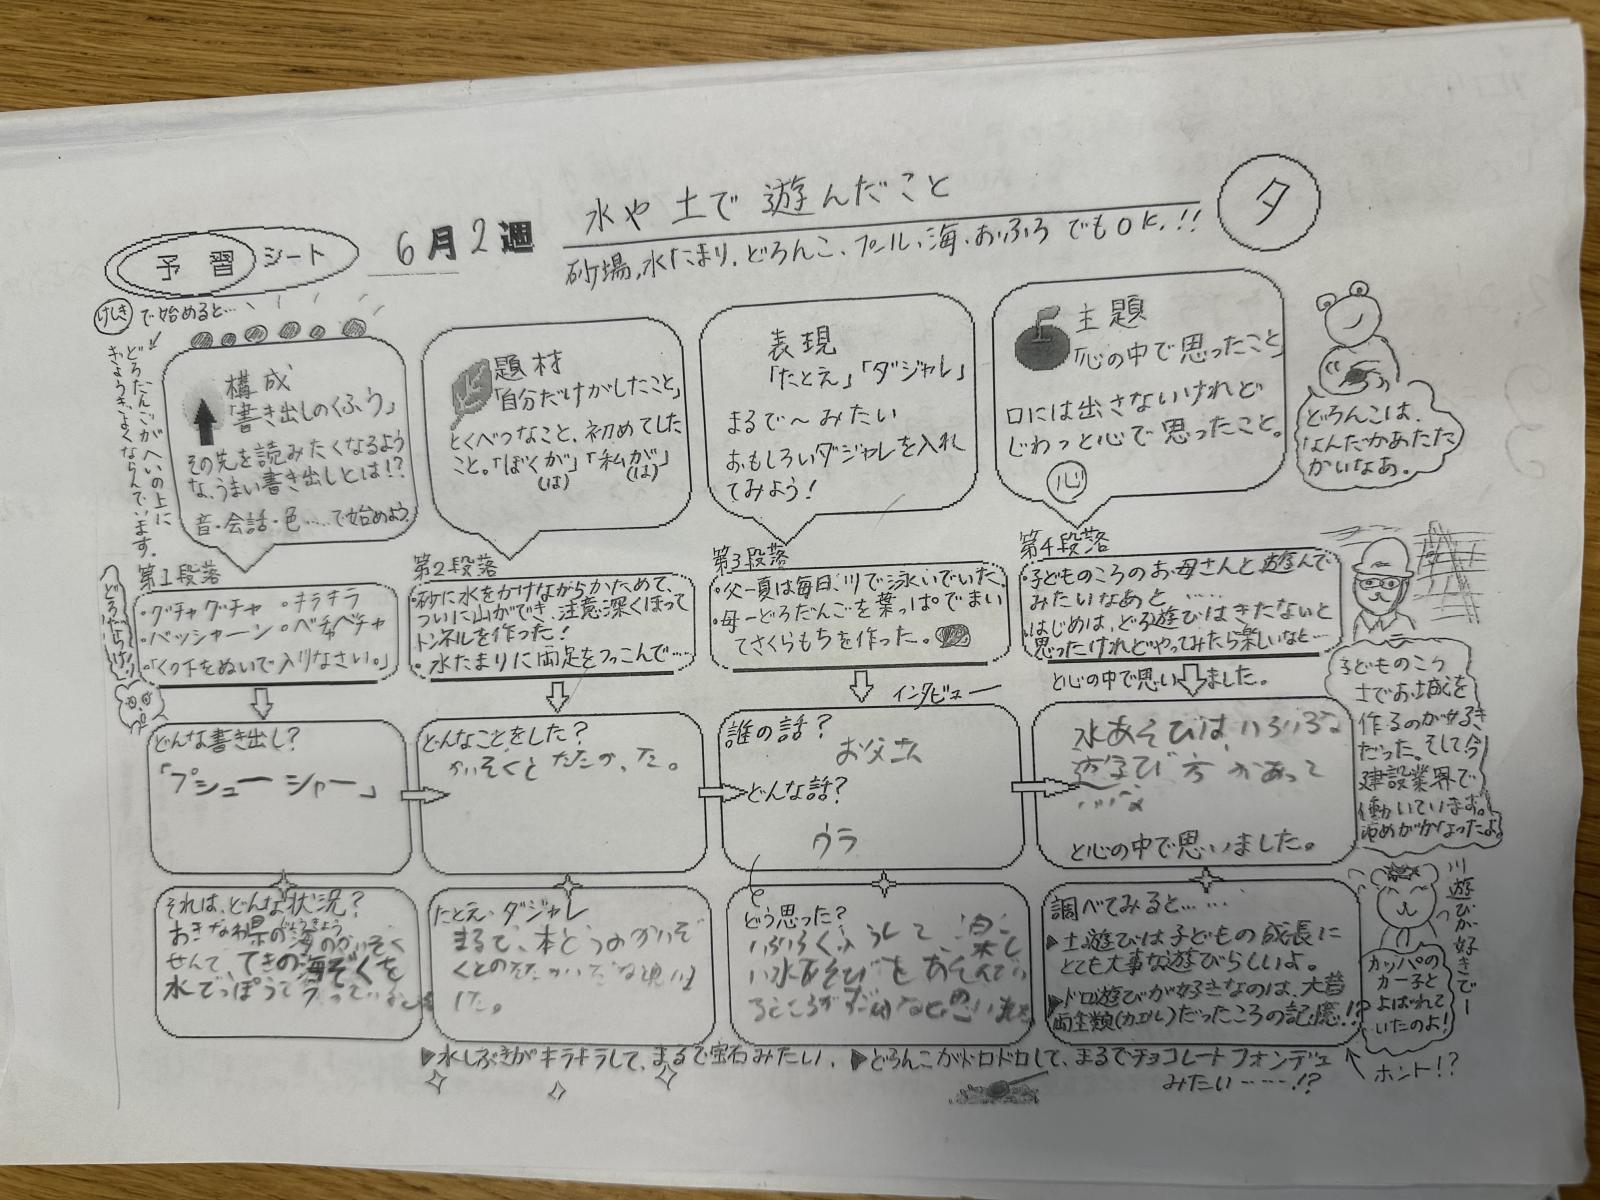 予習シート
6月2週
水や土で遊んだこと
砂場、水たまり、どろんこ、プール、海、おふろでもOK!!
夕
けしきで始めると…
どろだんごがへいの上に
ぎょうぎよくならんでいます。
構成
「書き出しのくふう」
その先を読みたくなるよう
な、うまい書き出しとは!?
音・会話・色……で始めよう。
題材
「自分だけがしたこと」
とくべつなこと、初めてした
こと。「ぼくが」「私が」
(は) (は)
表現
「たとえ」「ダジャレ」
まるで〜みたい
おもしろいダジャレを入れ
てみよう!
主題
「心の中で思ったこと」
口には出さないけれど
じわっと心で思ったこと。
心
どろんこは、
なんだかあたた
かいなあ。
第1段落
・グチャグチャ ・キラキラ
・バッシャーン ・ベチャベチャ
・「くつ下をぬいで入りなさい。」
第2段落
・砂に水をかけながらかためて、
ついに山ができ、注意深くほって
トンネルを作った!
・水たまりに両足をつっこんで……
第3段落
・父ー夏は毎日、川で泳いでいた。
・母ーどろだんごを葉っぱでまい
てさくらもちを作った。
第4段落
・子どものころのお母さんと遊んで
みたいなあと……
はじめは、どろ遊びはきたないと
思ったけれどやってみたら楽しいなと…
と心の中で思いました。
どんな書き出し?
「プシューシャー」
どんなことをした?
かいぞくとたたかった。
インタビュー
誰の話?
お父さん
どんな話?
水あそびは、いろいろな
遊び方があって
と心の中で思いました。
子どものころ
土でお城を
作るのが好き
だった。そして今
建設業界で
働いています。
ゆめがかなったよ。
それは、どんな状況?
おきなわ県の海のかいぞく
せんで、てきの海ぞくを
水でっぽうで
たとえ・ダジャレ
まるで、本とうのかいぞ
くとの
した。
どう思った?
いろいろくふうして、楽し
い水あそびを
ところが
調べてみると……
▶土遊びは子どもの成長に
とても大事な遊びらしいよ。
▶ドロ遊びが好きなのは、大昔
両生類(カエル)だったころの記憶!?
川遊びが好きでー
カッパの
カー子と
よばれて
いたのよ!
▶水しぶきがキラキラして、まるで宝石みたい。▶どろんこがドロドロして、まるでチョコレートフォンデュ
みたい……!?
ホント!?